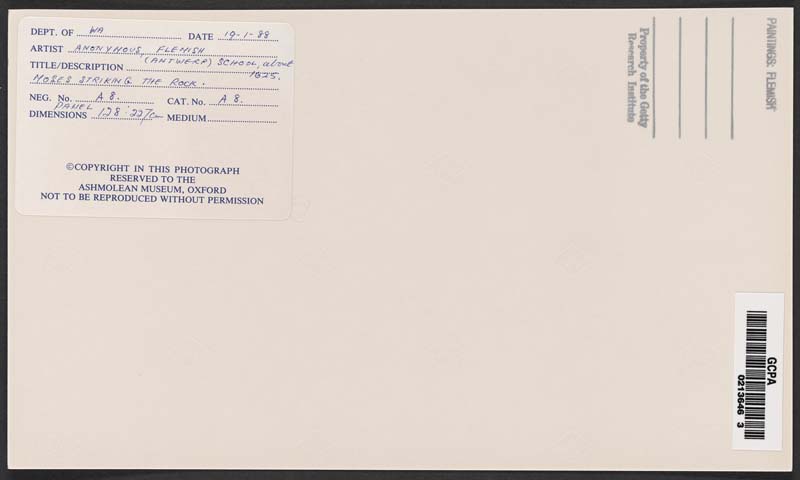 DEPT. OF WA DATE 19-1-88
ARTIST ANONYMOUS, FLEMISH
(ANTWERP) SCHOOL, about
TITLE/DESCRIPTION 1625.
MOSES STRIKING THE ROCK.
NEG. No. A 8. CAT. No. A 8.
PANEL
DIMENSIONS 128 : 227cm MEDIUM
©COPYRIGHT IN THIS PHOTOGRAPH
RESERVED TO THE
ASHMOLEAN MUSEUM, OXFORD
NOT TO BE REPRODUCED WITHOUT PERMISSION
Property of the Getty
Research Institute
PAINTINGS: FLEMISH
GCPA
0213646 3